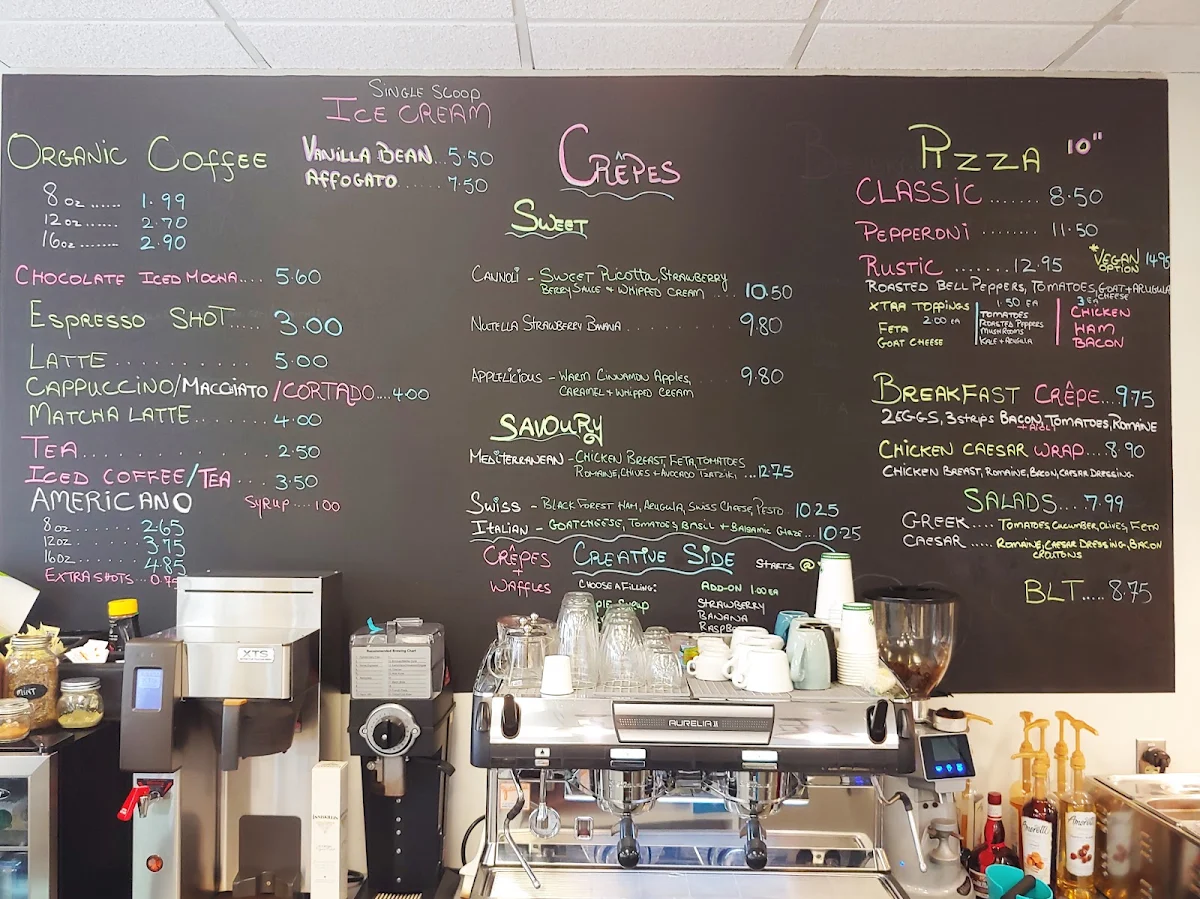 SINGLE SCOOP
ICE CREAM
VANILLA BEAN...5.50
AFFOGATO.......7.50
ORGANIC COFFEE
8oz...... 1.99
12oz........ 2.70
16oz........ 2.90
CHOCOLATE ICED MOCHA.... 5.60
ESPRESSO SHOT..... 3.00
LATTE............. 5.00
CAPPUCCINO/MACCHIATO/CORTADO....4.00
MATCHA LATTE......... 4.00
TEA.................. 2.50
ICED COFFEE/TEA.... 3.50
AMERICANO
SYRUP....1.00
8oz........ 2.65
12oz........ 3.75
16oz........ 4.85
EXTRA SHOTS...0.75
CRÊPES
SWEET
CANNOLI - SWEET RICOTTA, STRAWBERRY
BERRY SAUCE + WHIPPED CREAM .... 10.50
NUTELLA STRAWBERRY BANANA .......... 9.80
APPLELICIOUS - WARM CINNAMON APPLES, ...... 9.80
CARAMEL + WHIPPED CREAM
SAVOURY
MEDITERRANEAN - CHICKEN BREAST, FETA, TOMATOES
ROMAINE, CHIVES + AVOCADO TZATZIKI ...12.75
SWISS - BLACK FOREST HAM, ARUGULA, SWISS CHEESE, PESTO...10.25
ITALIAN - GOAT CHEESE, TOMATOES, BASIL + BALSAMIC GLAZE...10.25
CRÊPES
+
WAFFLES
CREATIVE SIDE
STARTS @
CHOOSE A FILLING:
ADD-ON 1.00 EA
STRAWBERRY
BANANA
RASPB
PIZZA 10"
CLASSIC ....... 8.50
PEPPERONI ........ 11.50
RUSTIC .......12.95
*VEGAN OPTION 14.95
ROASTED BELL PEPPERS, TOMATOES, GOAT CHEESE + ARUGULA
XTRA TOPPINGS
2.00 EA
FETA
GOAT CHEESE
1.50 EA
TOMATOES
ROASTED PEPPERS
MUSHROOMS
KALE + ARUGULA
3 EA
CHICKEN
HAM
BACON
BREAKFAST CRÊPE...9.75
2 EGGS, 3 strips BACON, TOMATOES, ROMAINE
+ AIOLI
CHICKEN CAESAR WRAP...8.90
CHICKEN BREAST, ROMAINE, BACON, CAESAR DRESSING
SALADS....7.99
GREEK.... TOMATOES, CUCUMBER, OLIVES, FETA
CAESAR.... ROMAINE, CAESAR DRESSING, BACON
CROUTONS
BLT..... 8.75
XTS
Recommended Brewing Chart
MINT
AURELIA II
Amoretti
Amoretti